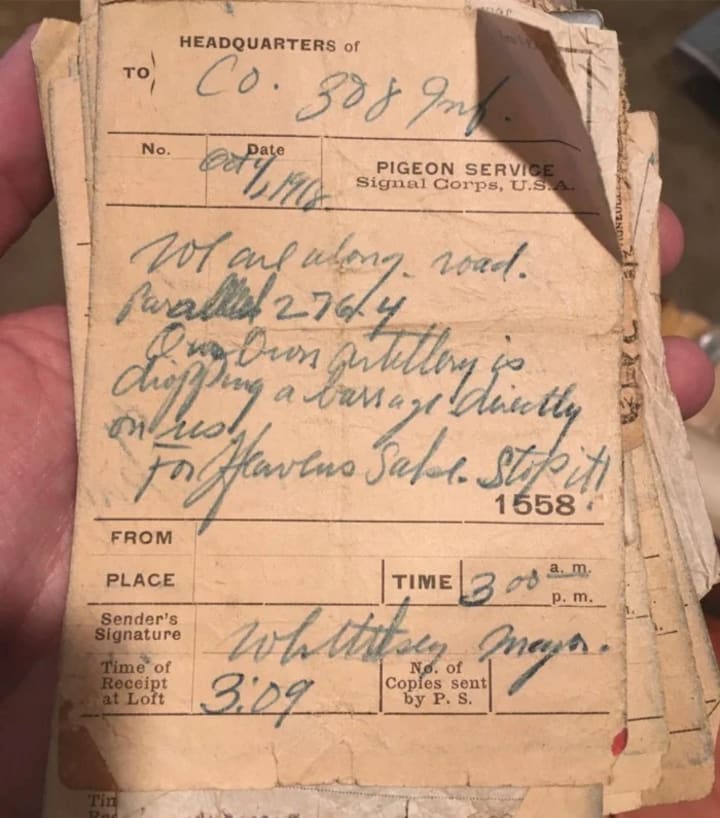 HEADQUARTERS of
TO Co. 308 Inf.
No. Date PIGEON SERVICE
Oct 4, 1918. Signal Corps, U.S.A.
We are along road.
Parallel 276.4
Our Own artillery is
dropping a barrage directly
on us.
For Heavens Sake. Stop it!
1558.
FROM
PLACE TIME 3 00 a. m.
p. m.
Sender's
Signature Whittlesey Major.
Time of
Receipt
at Loft 3:09 No. of
Copies sent
by P. S.
Tin